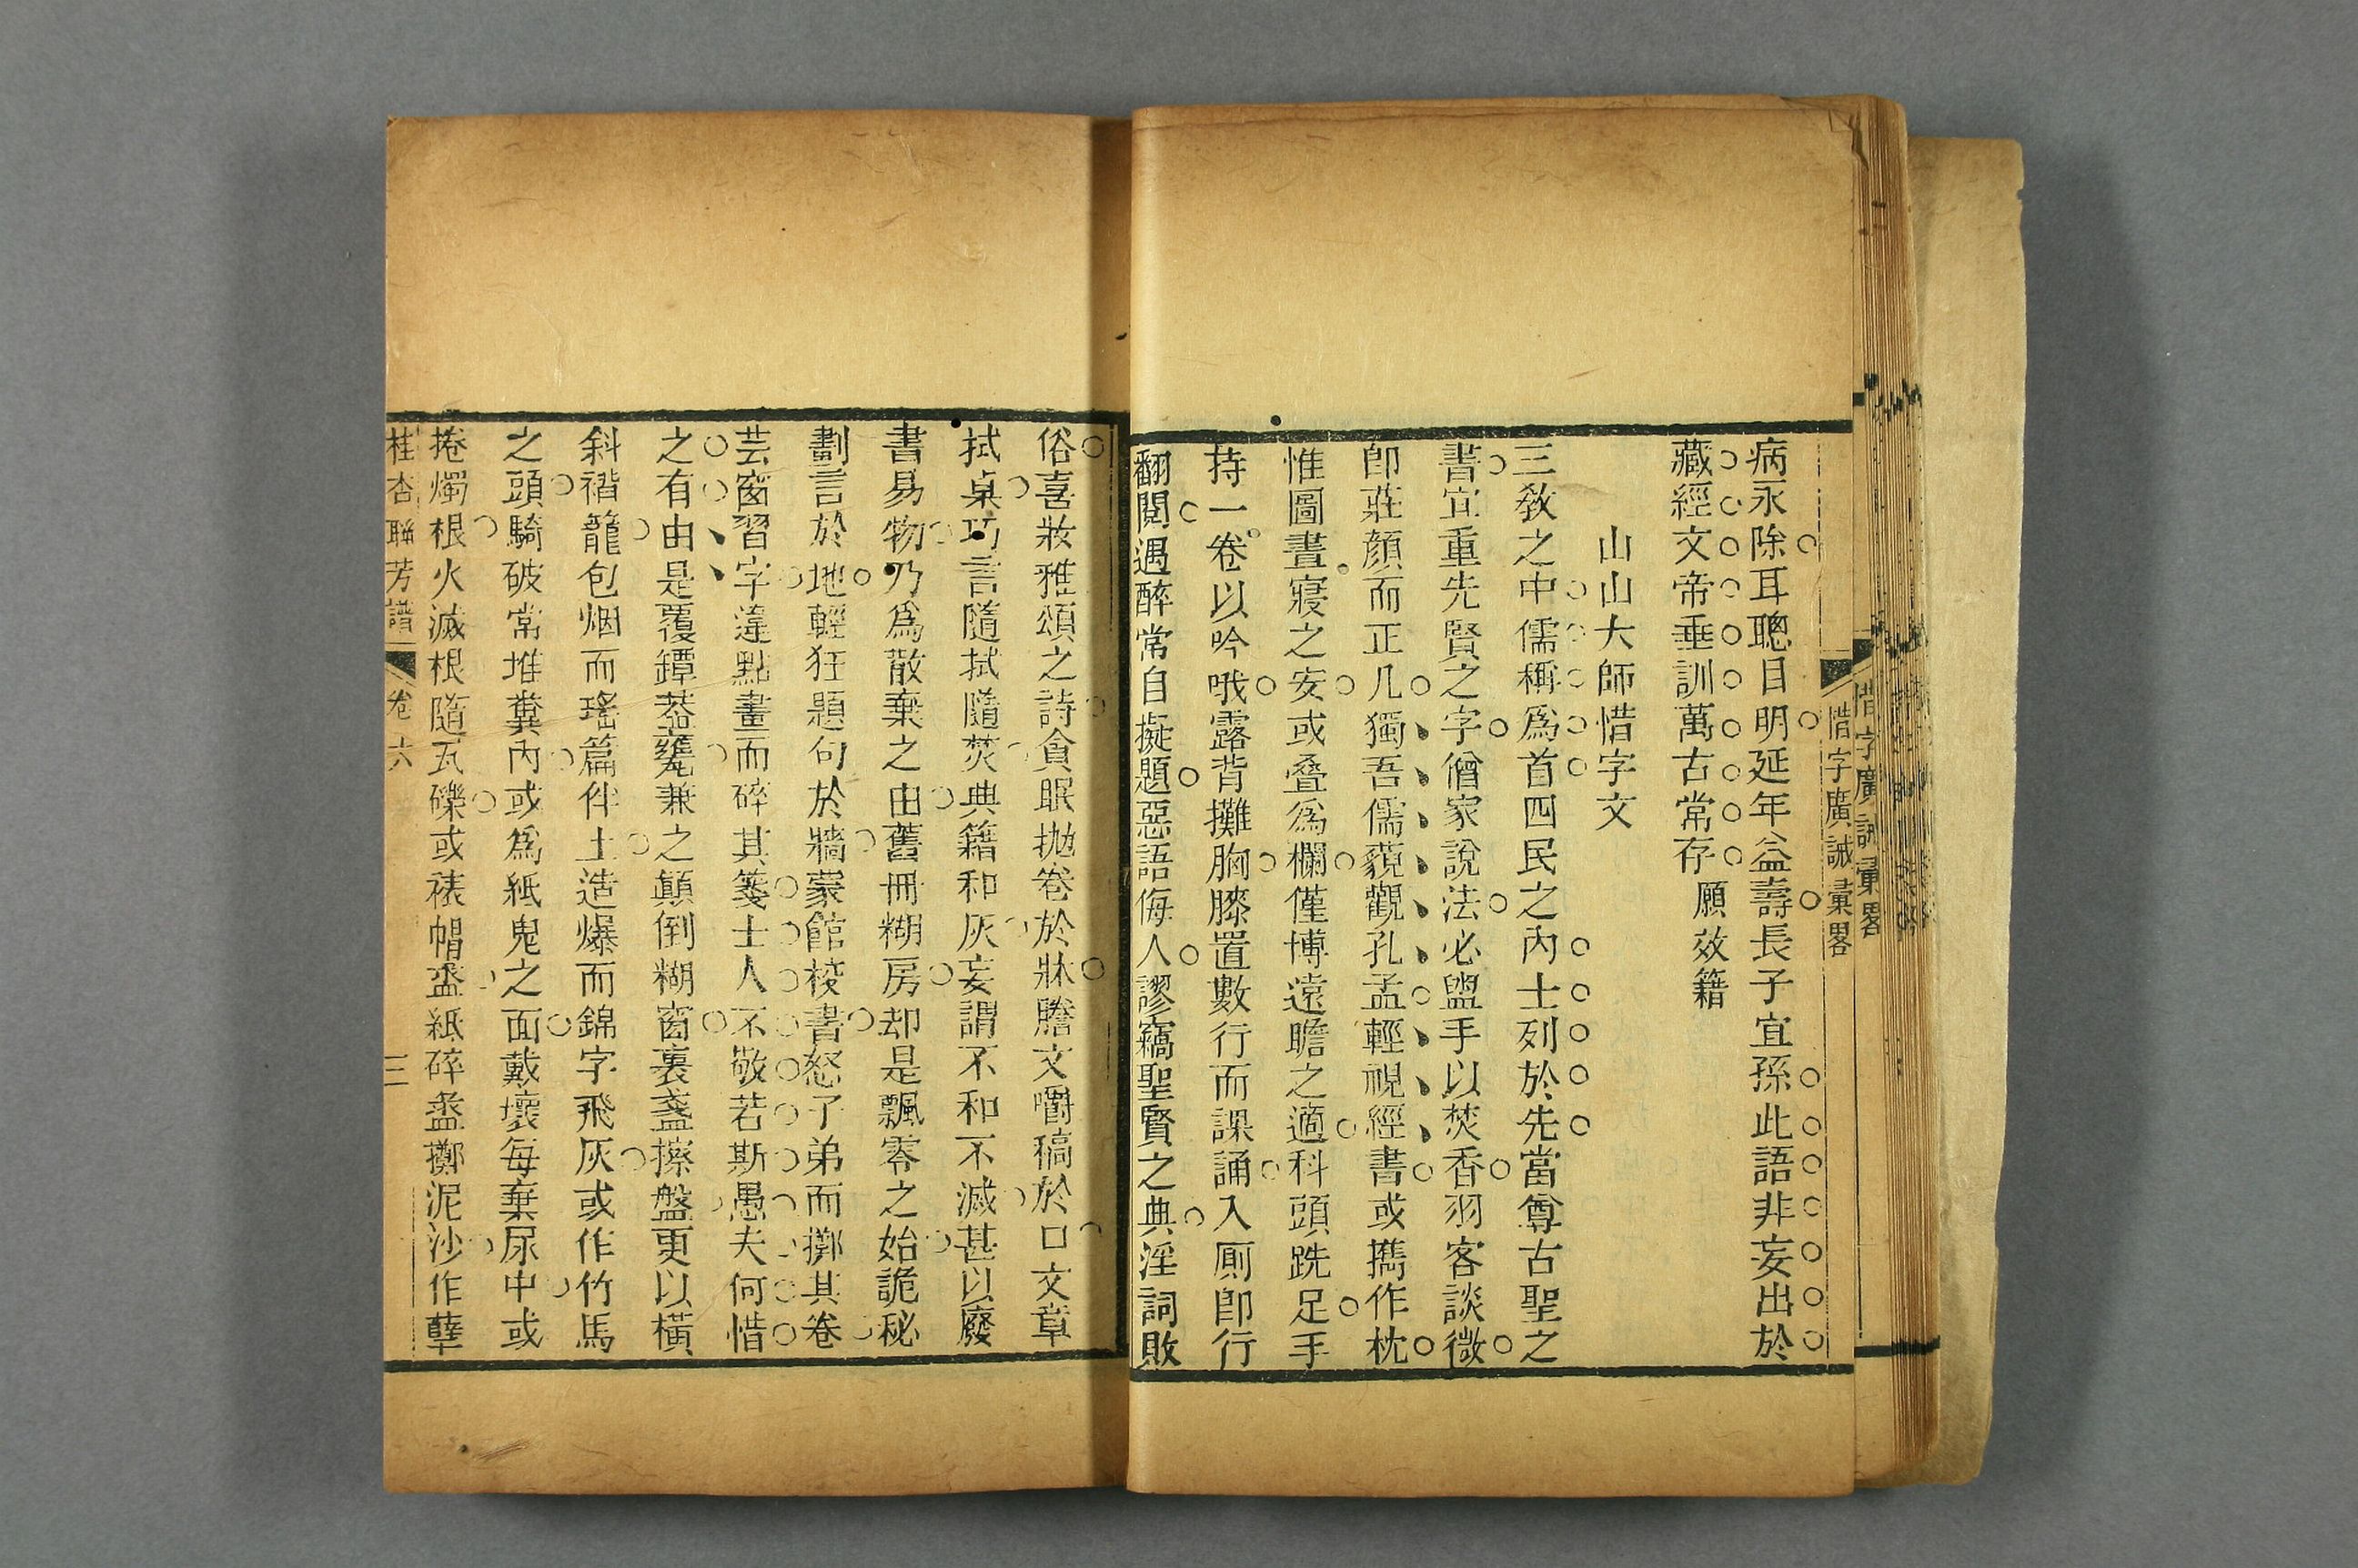 惜字廣誡彙畧
病永除耳聰目明延年益壽長子宜孫此語非妄出於
藏經文帝垂訓萬古常存願效籍
山山大師惜字文
三敎之中儒稱爲首四民之內士列於先當尊古聖之
書宜重先賢之字僧家說法必盥手以焚香羽客談微
卽莊顏而正几獨吾儒藐觀孔孟輕視經書或擕作枕
惟圖晝寢之安或叠爲欄僅博遠瞻之適科頭跣足手
持一卷以吟哦露背攤胸膝置數行而課誦入厠卽行
翻閱遇醉常自擬題惡語侮人謬竊聖賢之典淫詞敗
俗喜妝雅頌之詩貪眠抛卷於牀謄文嚼稿於口文章
拭桌巧言隨拭隨焚典籍和灰妄謂不和不滅甚以廢
書易物乃爲散棄之由舊冊糊房却是飄零之始詭秘
劃言於地輕狂題句於牆蒙館校書怒了弟而擲其卷
芸窗習字違點畫而碎其箋士人不敬若斯愚夫何惜
之有由是覆罈葢甕兼之顛倒糊窗裹盞擦盤更以橫
斜褙籠包烟而瑤篇伴土造爆而錦字飛灰或作竹馬
之頭騎破常堆糞內或爲紙鬼之面戴壞每棄尿中或
捲燭根火滅根隨瓦礫或裱帽盔紙碎盔擲泥沙作孽
桂杏聯芳譜 卷六 三